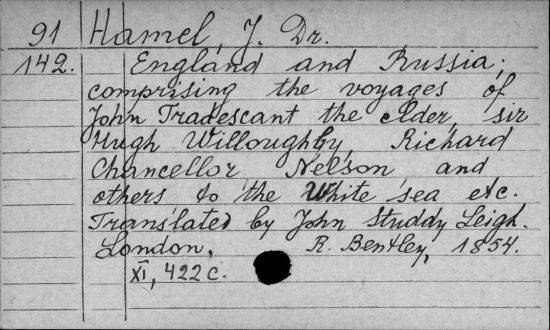 91 Hamel, J. Dr.
142. England and Russia;
comprising the voyages of
John Tradescant the elder, sir
Hugh Willoughby, Richard
Chancellor Nelson and
others to the White sea etc.
Translated by John Studdy Leigh.
London, R. Bentley, 1854.
XI, 422 c.